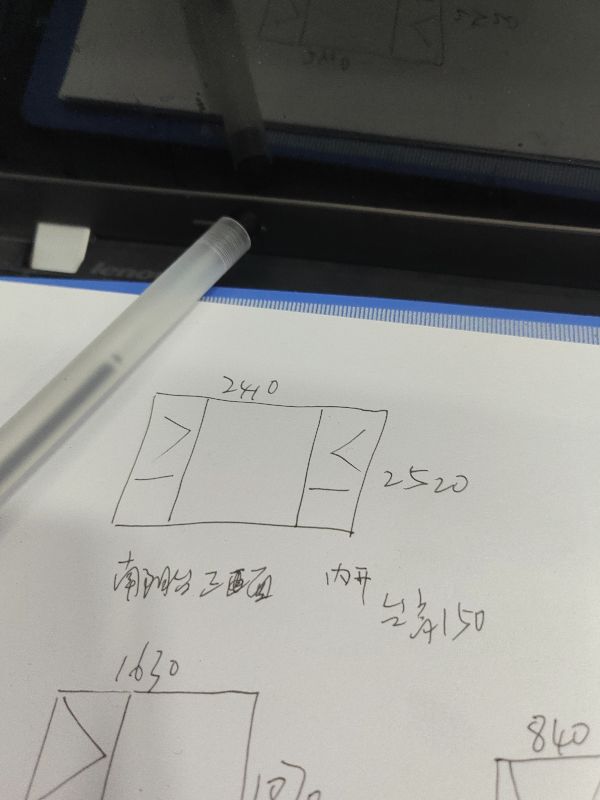 lenovo
2410
2520
南阳台正面 内开
台高150
1630
1070
840